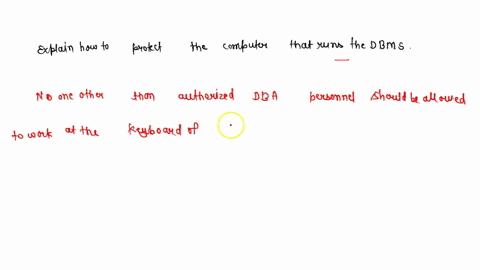 Explain how to protect the computer that runs the DBMS.
No one other than authorized DBA personnel should be allowed
to work at the keyboard of